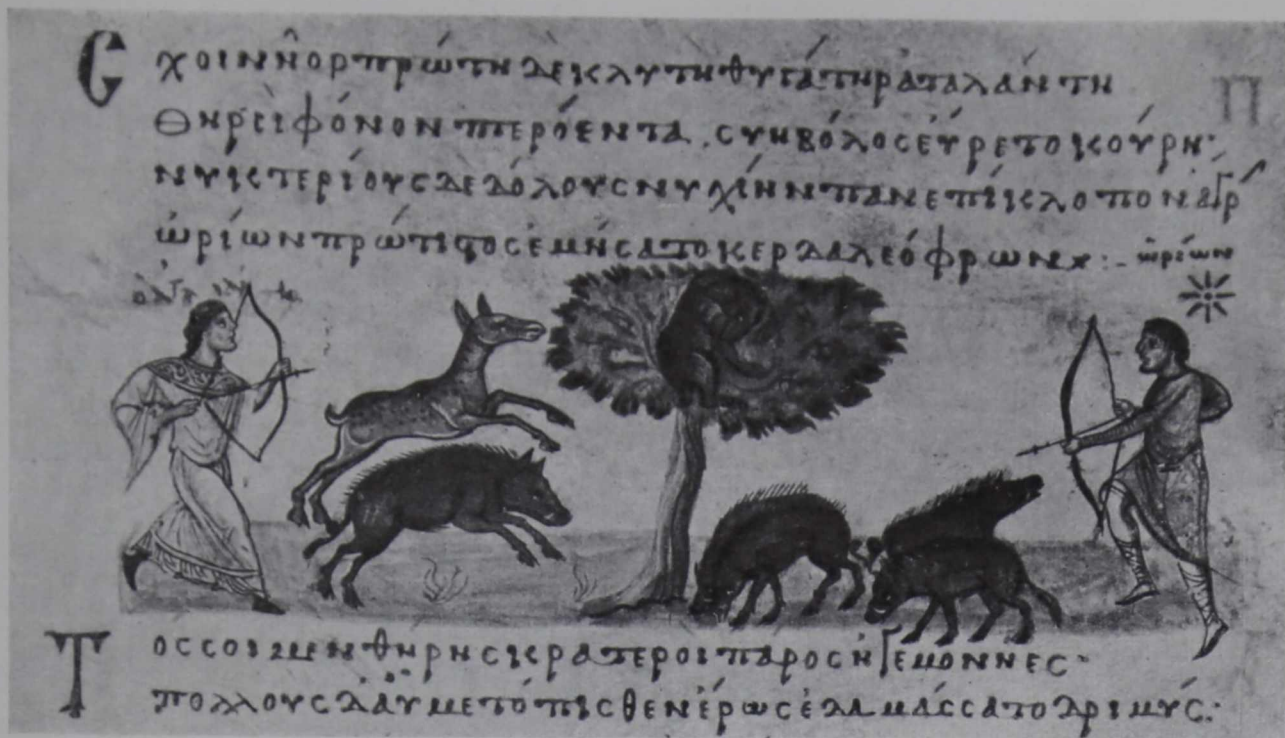 Σχοινῆος πρώτη δὲ κλυτὴ θυγάτηρ ἀταλάντη
θηρσὶ φόνον πτερόεντα. συηβόλος εὕρετο κούρη·
νυκτερίους δὲ δόλους νυχίην πανεπίκλοπον ἄγρ
ὠρίων πρώτιστος ἐμήσατο κερδαλεόφρων :- ὠρίων
Τόσσοι μεν θηρης κρατεροι παρος ηγεμονηες·
πολλους δ αὖ μετόπισθεν έρως ἐδαμάσσατο δριμύς: